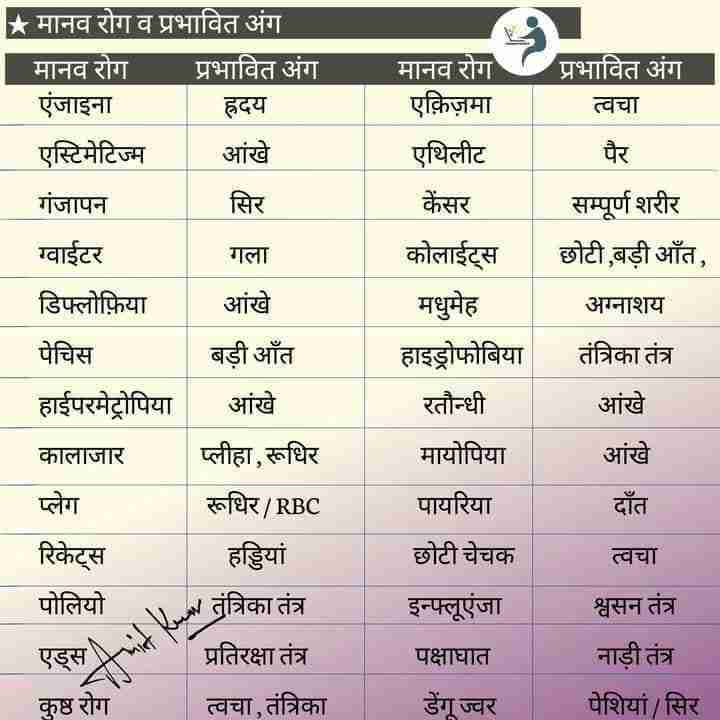 ★ मानव रोग व प्रभावित अंग
मानव रोग प्रभावित अंग मानव रोग प्रभावित अंग
एंजाइना ह्रदय एक्रिज़मा त्वचा
एस्टिमेटिज्म आंखे एथिलीट पैर
गंजापन सिर केंसर सम्पूर्ण शरीर
ग्वाईटर गला कोलाईट्स छोटी ,बड़ी आँत ,
डिफ्लोफ़िया आंखे मधुमेह अग्नाशय
पेचिस बड़ी आँत हाइड्रोफोबिया तंत्रिका तंत्र
हाईपरमेट्रोपिया आंखे रतौन्धी आंखे
कालाजार प्लीहा , रूधिर मायोपिया आंखे
प्लेग रूधिर / RBC पायरिया दाँत
रिकेट्स हड्डियां छोटी चेचक त्वचा
पोलियो तंत्रिका तंत्र इन्फ्लूएंजा श्वसन तंत्र
एड्स प्रतिरक्षा तंत्र पक्षाघात नाड़ी तंत्र
कुष्ठ रोग त्वचा , तंत्रिका डेंगू ज्वर पेशियां / सिर